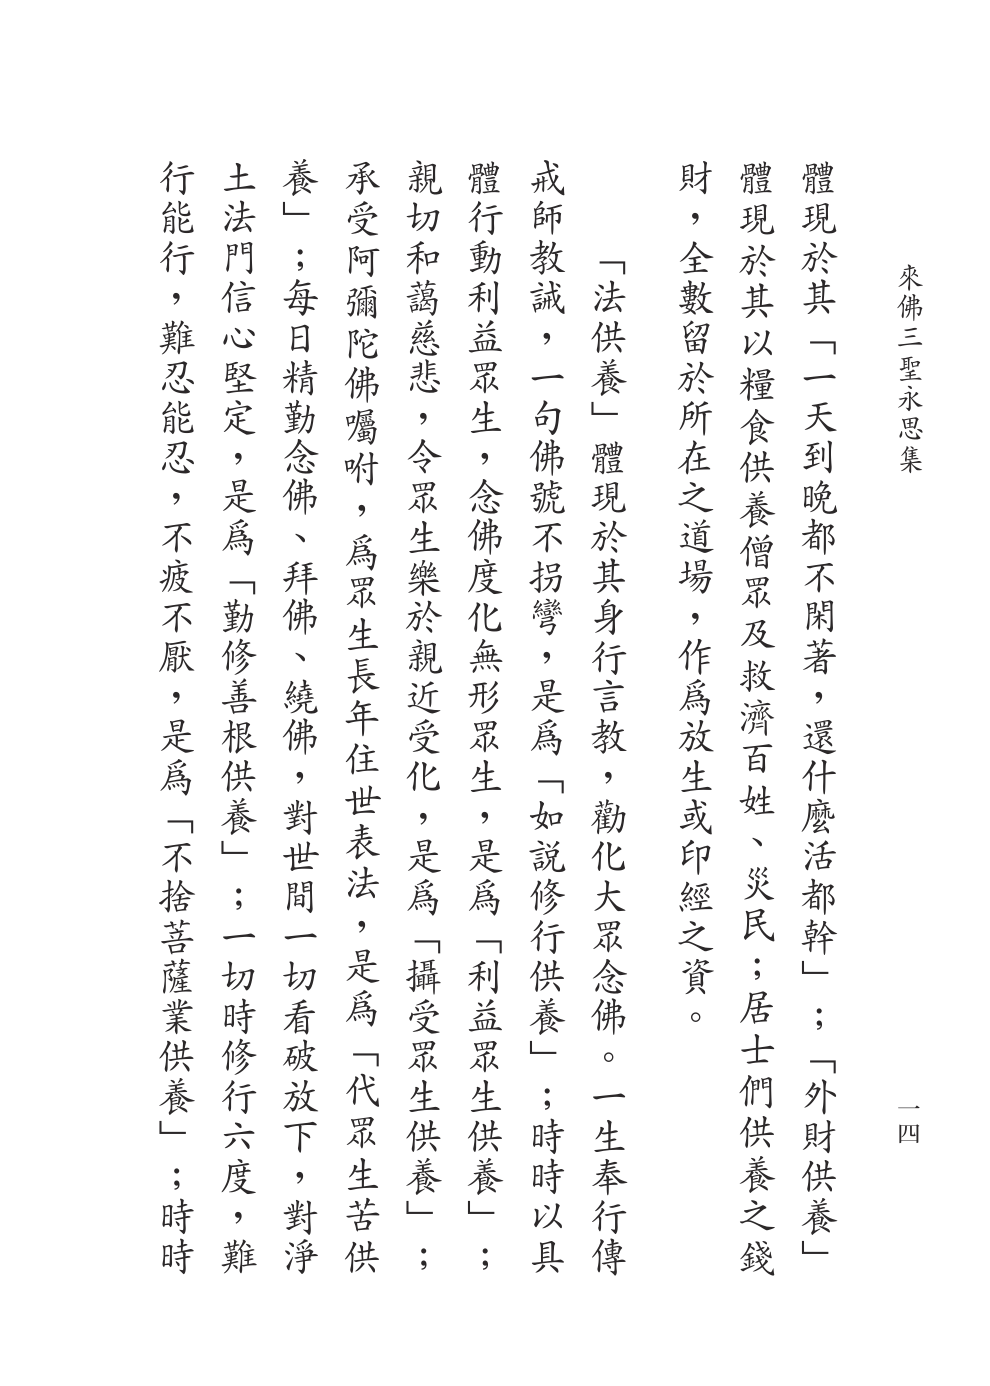 來佛三聖永思集
一四
體現於其「一天到晚都不閑著，還什麼活都幹」；「外財供養」
體現於其以糧食供養僧眾及救濟百姓、災民；居士們供養之錢
財，全數留於所在之道場，作爲放生或印經之資。
「法供養」體現於其身行言教，勸化大眾念佛。一生奉行傳
戒師教誡，一句佛號不拐彎，是爲「如説修行供養」；時時以具
體行動利益眾生，念佛度化無形眾生，是爲「利益眾生供養」；
親切和藹慈悲，令眾生樂於親近受化，是爲「攝受眾生供養」；
承受阿彌陀佛囑咐，爲眾生長年住世表法，是爲「代眾生苦供
養」；每日精勤念佛、拜佛、繞佛，對世間一切看破放下，對淨
土法門信心堅定，是爲「勤修善根供養」；一切時修行六度，難
行能行，難忍能忍，不疲不厭，是爲「不捨菩薩業供養」；時時